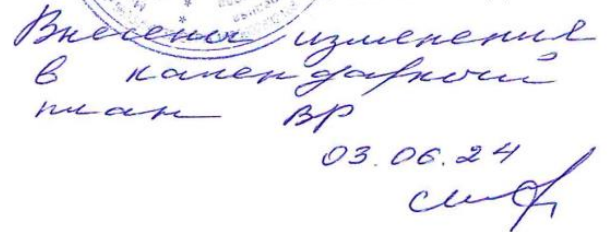 Внесены изменения
в календарный
план ВР
03.06.24